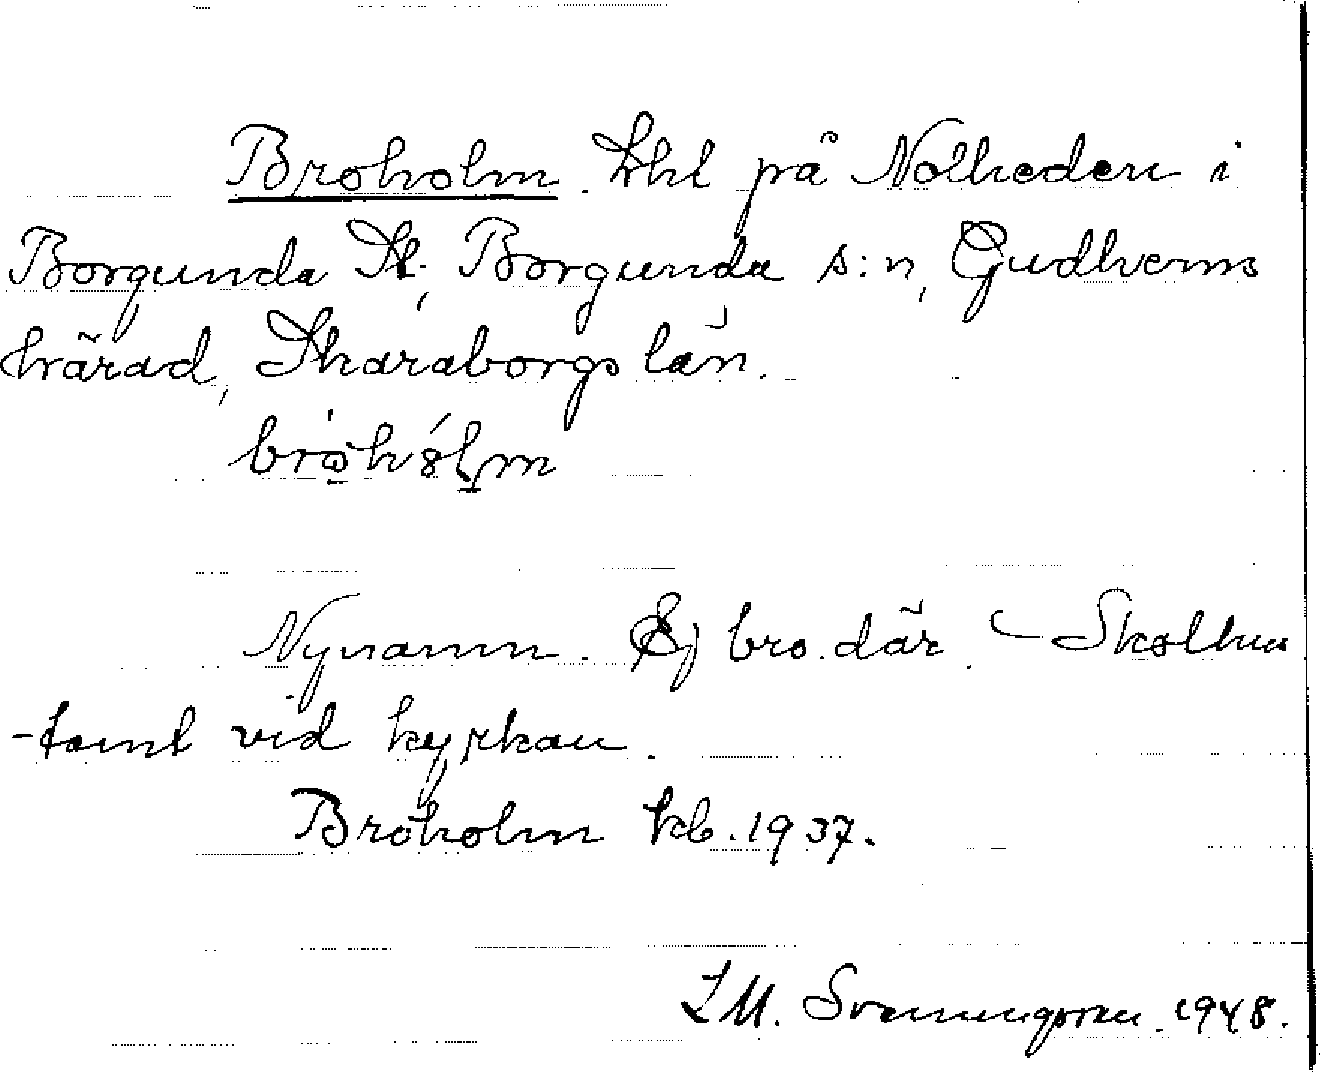 Broholm. Lht på Nolheden i
Borgunda St., Borgunda s:n, Gudhems
härad, Skaraborgs län.
Nynamn. Ej bro där. Skolhus
-tomt vid kyrkan.
Broholm kb. 1937.
Svenungsson 1948.